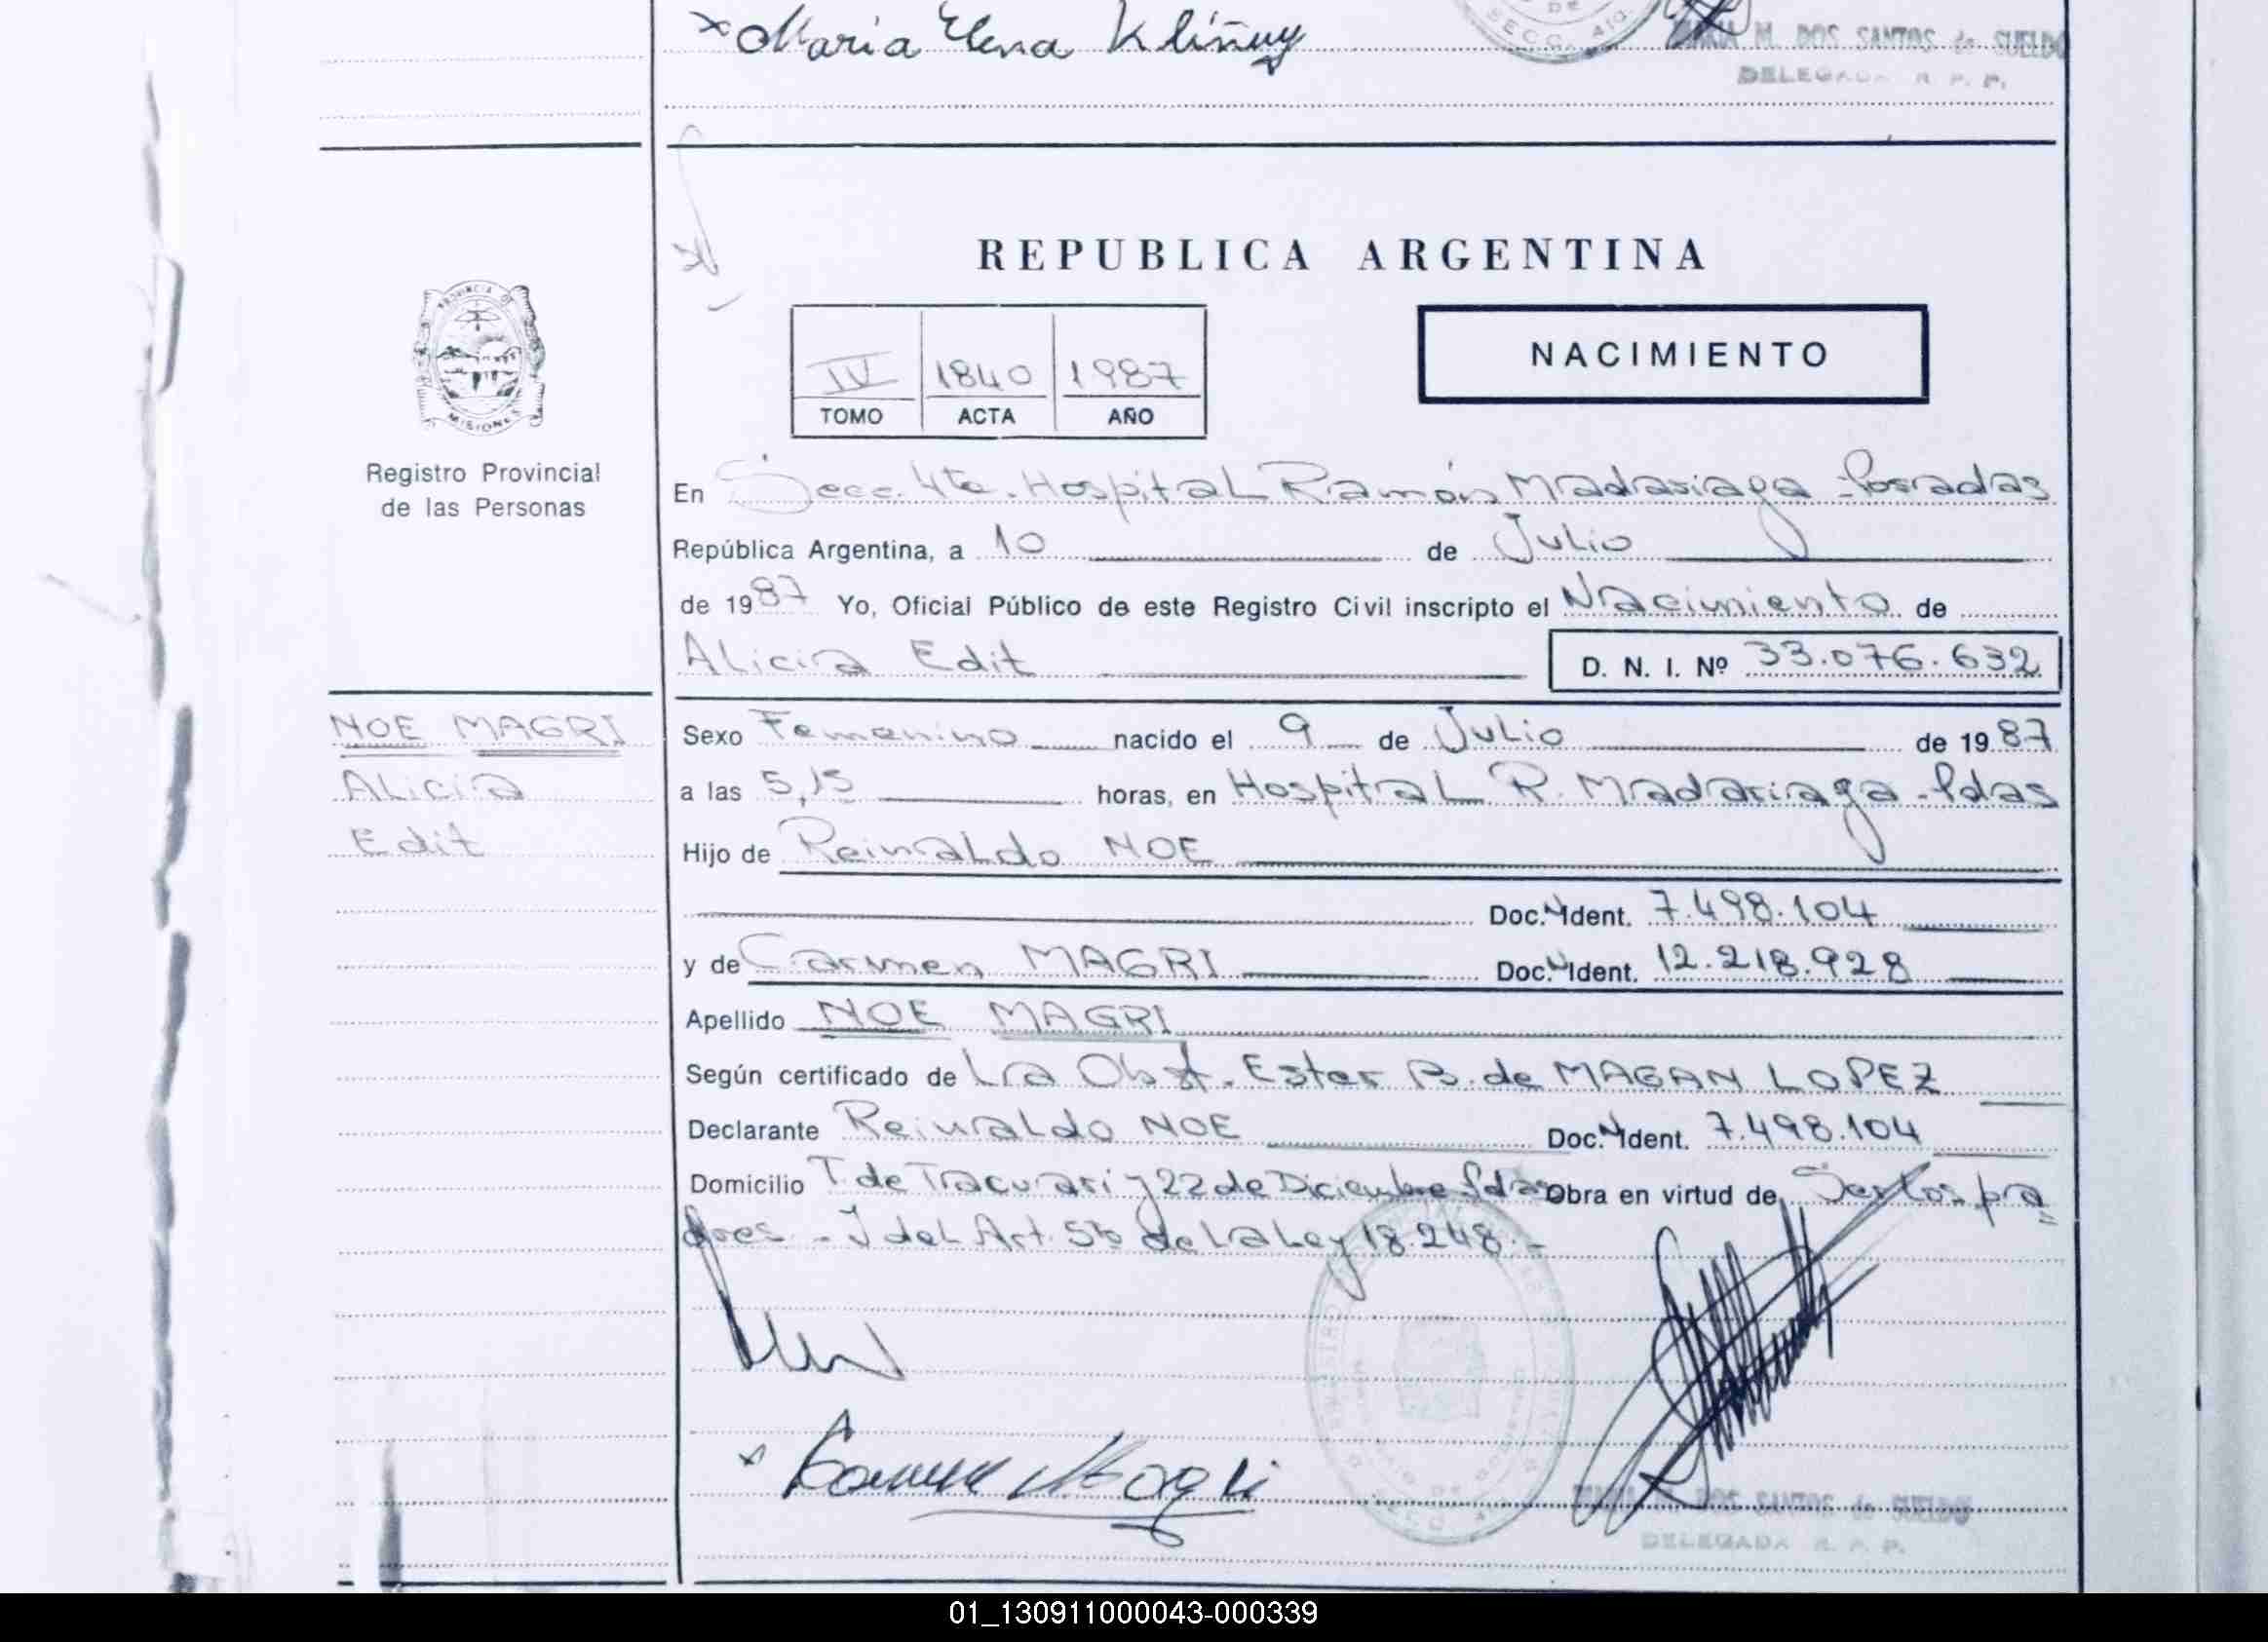 x Maria Elena Kliñuy
SECC. 4ta.
MARIA M. DOS SANTOS de SUELDO
DELEGADA R. P. P.
REPUBLICA ARGENTINA
PROVINCIA DE
MISIONES
Registro Provincial
de las Personas
IV 1840 1987
TOMO ACTA AÑO
NACIMIENTO
En Secc. 4ta. Hospital Ramón Madariaga - Posadas
República Argentina, a 10 de Julio
de 1987 Yo, Oficial Público de este Registro Civil inscripto el Nacimiento de
Alicia Edit D. N. I. Nº 33.076.632
NOE MAGRI
Alicia
Edit
Sexo Femenino nacido el 9 de Julio de 1987
a las 5,15 horas, en Hospital R. Madariaga - Pdas
Hijo de Reinaldo NOE
Doc. N Ident. 7.498.104
y de Carmen MAGRI Doc. N Ident. 12.218.928
Apellido NOE MAGRI
Según certificado de La Obst. Ester B. de MAGAN LOPEZ
Declarante Reinaldo NOE Doc. N Ident. 7.498.104
Domicilio T. de Tacuarí y 22 de Diciembre Pdas Obra en virtud de Ser los pa=
dres - Y del Art. 5to de La Ley 18.248.-
x Carmen Magri
DOS SANTOS de SUELDO
DELEGADA R. P. P.
01_130911000043-000339